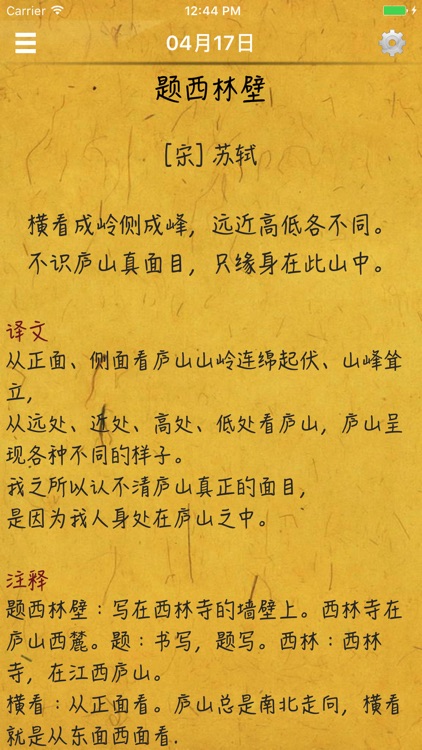 Carrier 12:44 PM
04月17日
题西林壁
[宋] 苏轼
横看成岭侧成峰，远近高低各不同。
不识庐山真面目，只缘身在此山中。
译文
从正面、侧面看庐山山岭连绵起伏、山峰耸
立，
从远处、近处、高处、低处看庐山，庐山呈
现各种不同的样子。
我之所以认不清庐山真正的面目，
是因为我人身处在庐山之中。
注释
题西林壁：写在西林寺的墙壁上。西林寺在
庐山西麓。题：书写，题写。西林：西林
寺，在江西庐山。
横看：从正面看。庐山总是南北走向，横看
就是从东面西面看.